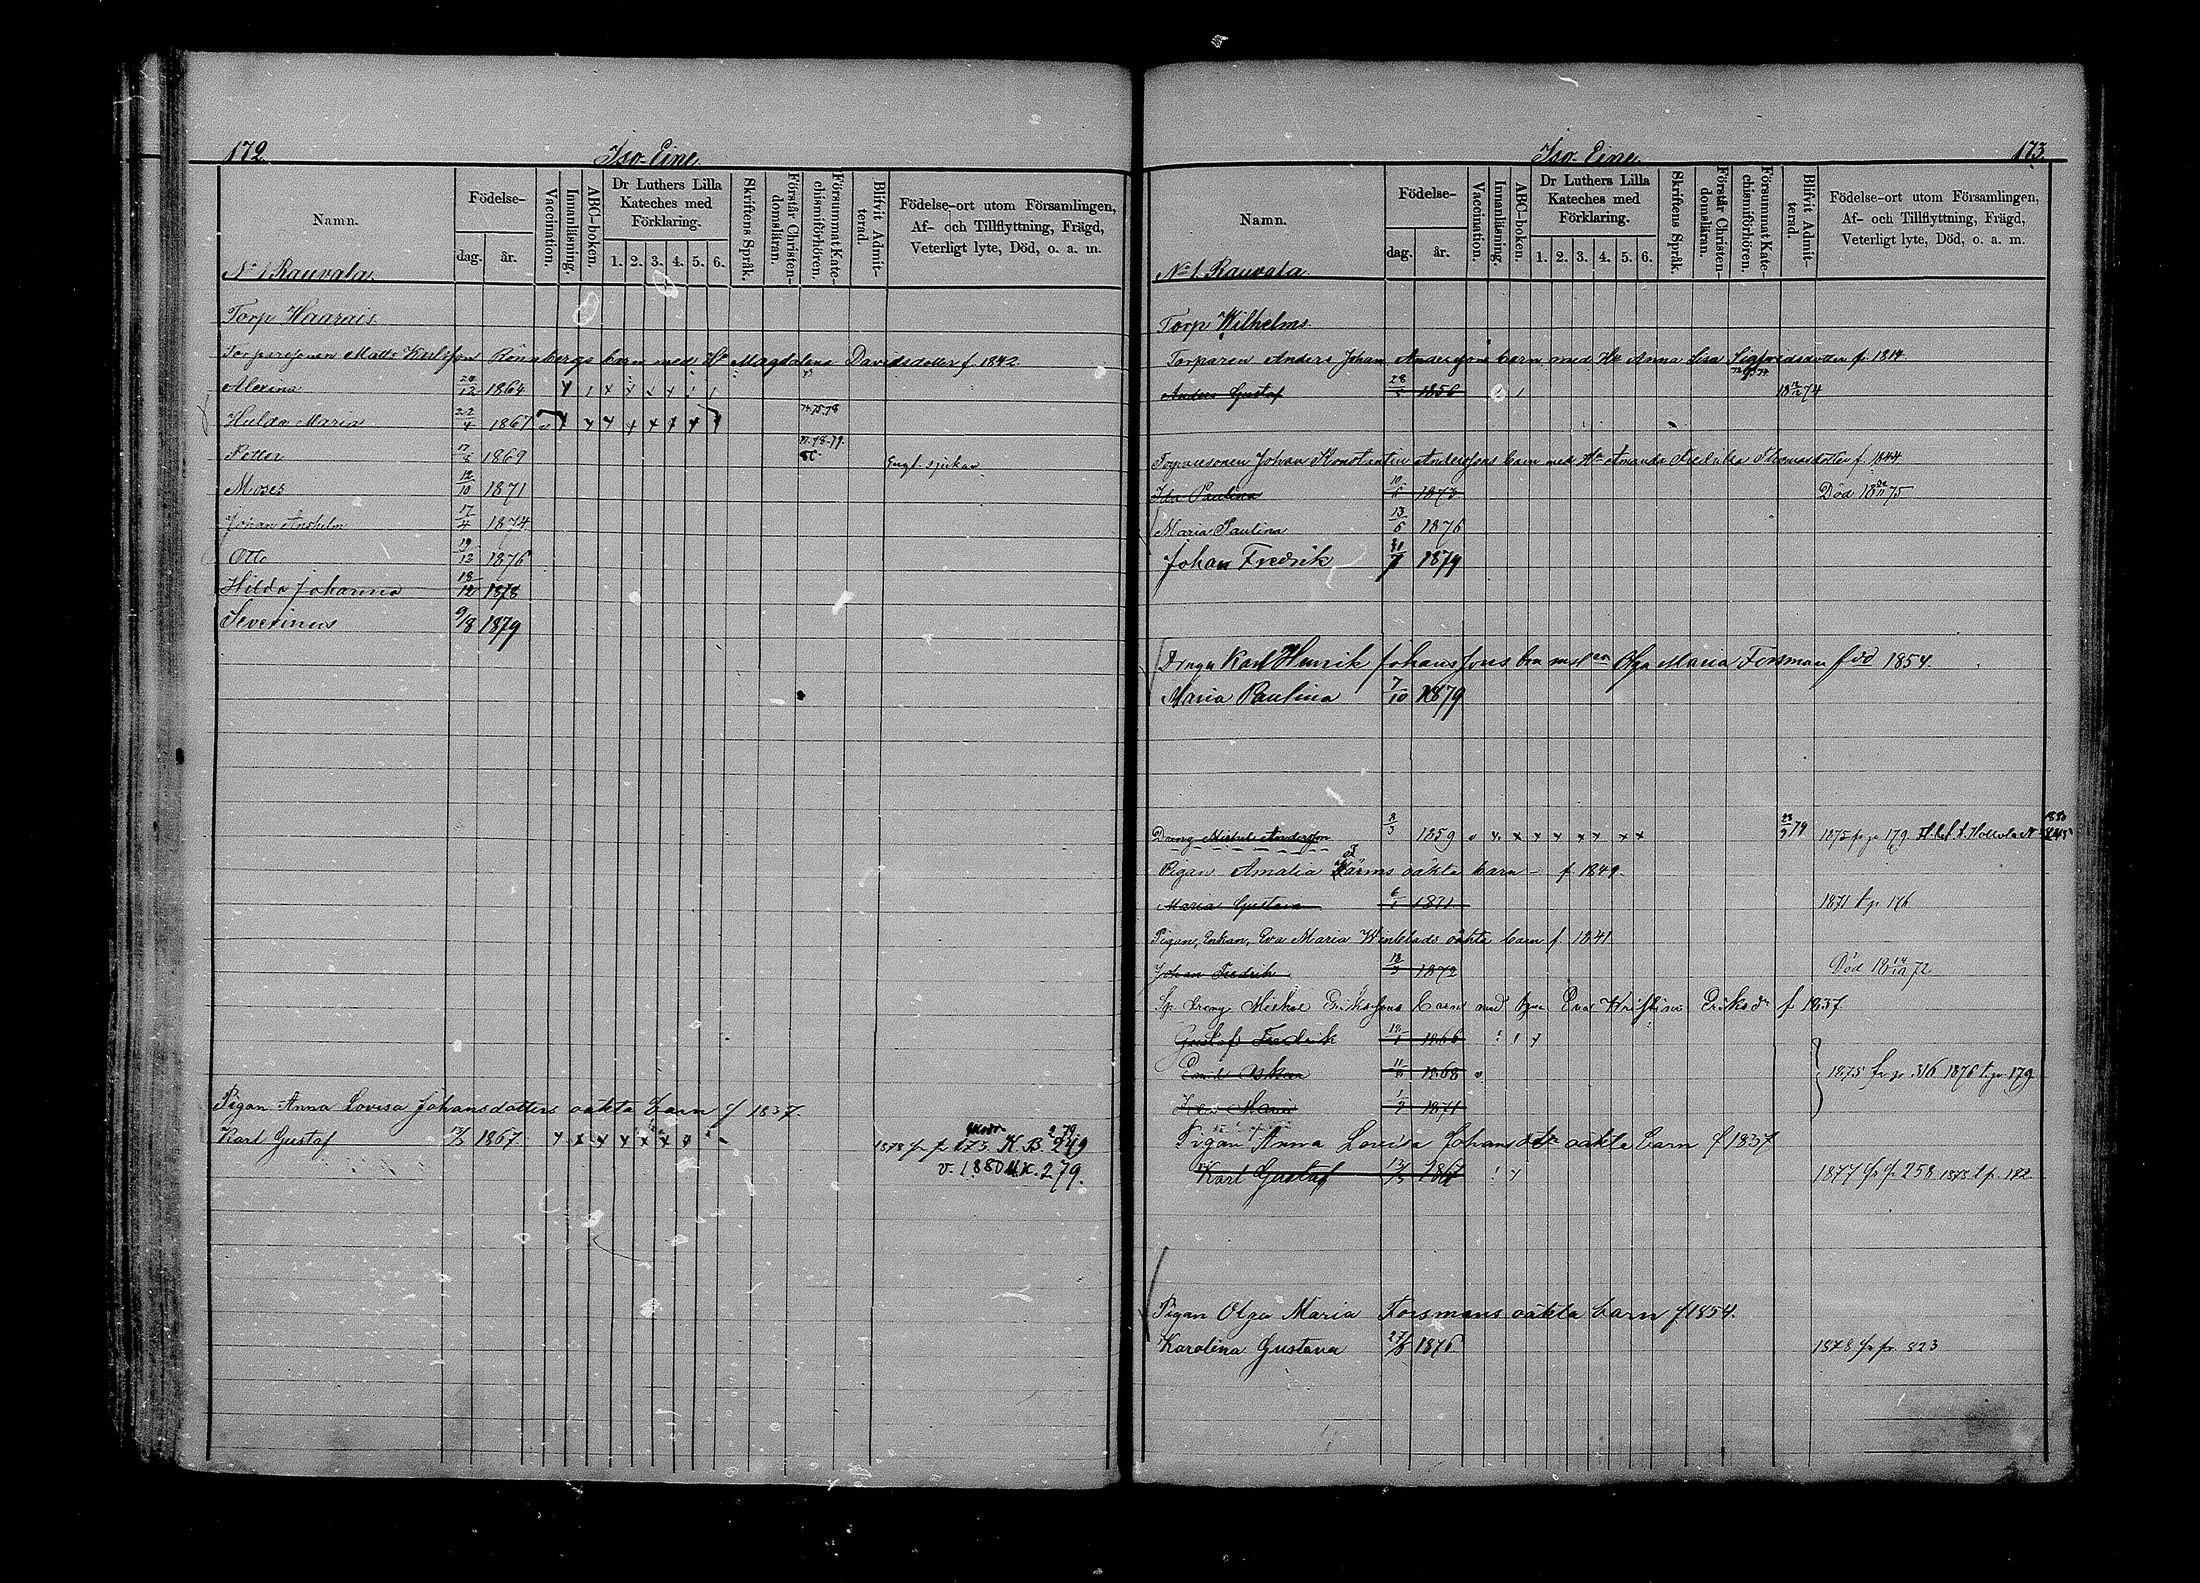 172.
Iso-Eine.
Namn.
Födelse-
dag.
år.
Vaccination.
Innanläsning.
ABC-boken.
Dr Luthers Lilla Kateches med Förklaring.
1. 2. 3. 4. 5. 6.
Skriftens Språk.
Förstår Christendomsläran.
Försummat Katechismiförhören.
Blifvit Admitterad.
Födelse-ort utom Församlingen, Af- och Tillflyttning, Frägd, Veterligt lyte, Död, o. a. m.
No 1. Rauvala.
Torp Haarais.
Torparesonen Matts Karlsson Rönnbergs barn med Hu Magdalena Davidsdotter f. 1842.
Alexina 20/12 1864
Hulda Maria 22/4 1867 74.75.78
Petter 17/8 1869 77.78.79. Engl. sjukan
Moses 12/10 1871
Johan Anshelm 17/4 1874
Otto 19/12 1876
Hilda Johanna 18/12 1878
Severinus 9/8 1879
Pigan Anna Lovisa Johansdotters oäkta barn f 1837.
Karl Gustaf 13/3 1867 1878 fr p 173. K.B. 249
v. 1880 279.
173.
Iso-Eine.
Namn.
Födelse-
dag.
år.
Vaccination.
Innanläsning.
ABC-boken.
Dr Luthers Lilla Kateches med Förklaring.
1. 2. 3. 4. 5. 6.
Skriftens Språk.
Förstår Christendomsläran.
Försummat Katechismiförhören.
Blifvit Admitterad.
Födelse-ort utom Församlingen, Af- och Tillflyttning, Frägd, Veterligt lyte, Död, o. a. m.
No 1. Rauvala
Torp Wilhelms.
Torparen Anders Johan Anderssons barn med Hu Anna Lisa Sigfredsdotter f. 1814.
Anders Gustaf 1856 74
Torparesonen Johan Konstantin Anderssons barn med Hu Amanda Fredrika Thomasdotter f. 1844.
Ida Paulina 1873 Död 75
Maria Paulina 13/6 1876
Johan Fredrik 1879
Dräng Karl Henrik Johanssons barn med Olga Maria Forsman född 1854.
Maria Paulina 7/10 1879
Dräng Mickel Andersson 8/3 1859 79 1875 fr p 179.
Pigan Amalia oäkta barn f 1849.
Maria Gustava 6/1 1871 1871 t p 176
Pigan, Enkan, Eva Maria Winblads oäkta barn f. 1841
Johan Fredrik 1872 Död 18 14/10 72
Dräng Mickel Erikssons barn med Eva Kristina Eriksdr f 1837.
Gustaf Fredrik 1866
Emil Oskar 1868 1875 fr p. 316 1876 t. p. 179
Maria 1871
Pigan Anna Lovisa Johansdtr oäkta barn f 1837
Karl Gustaf 13/3 1867 1877 fr p. 258 1878 t p. 172
Pigan Olga Maria Forsmans oäkta barn f 1854.
Karolina Gustava 27/8 1876. 1878 fr p. 323